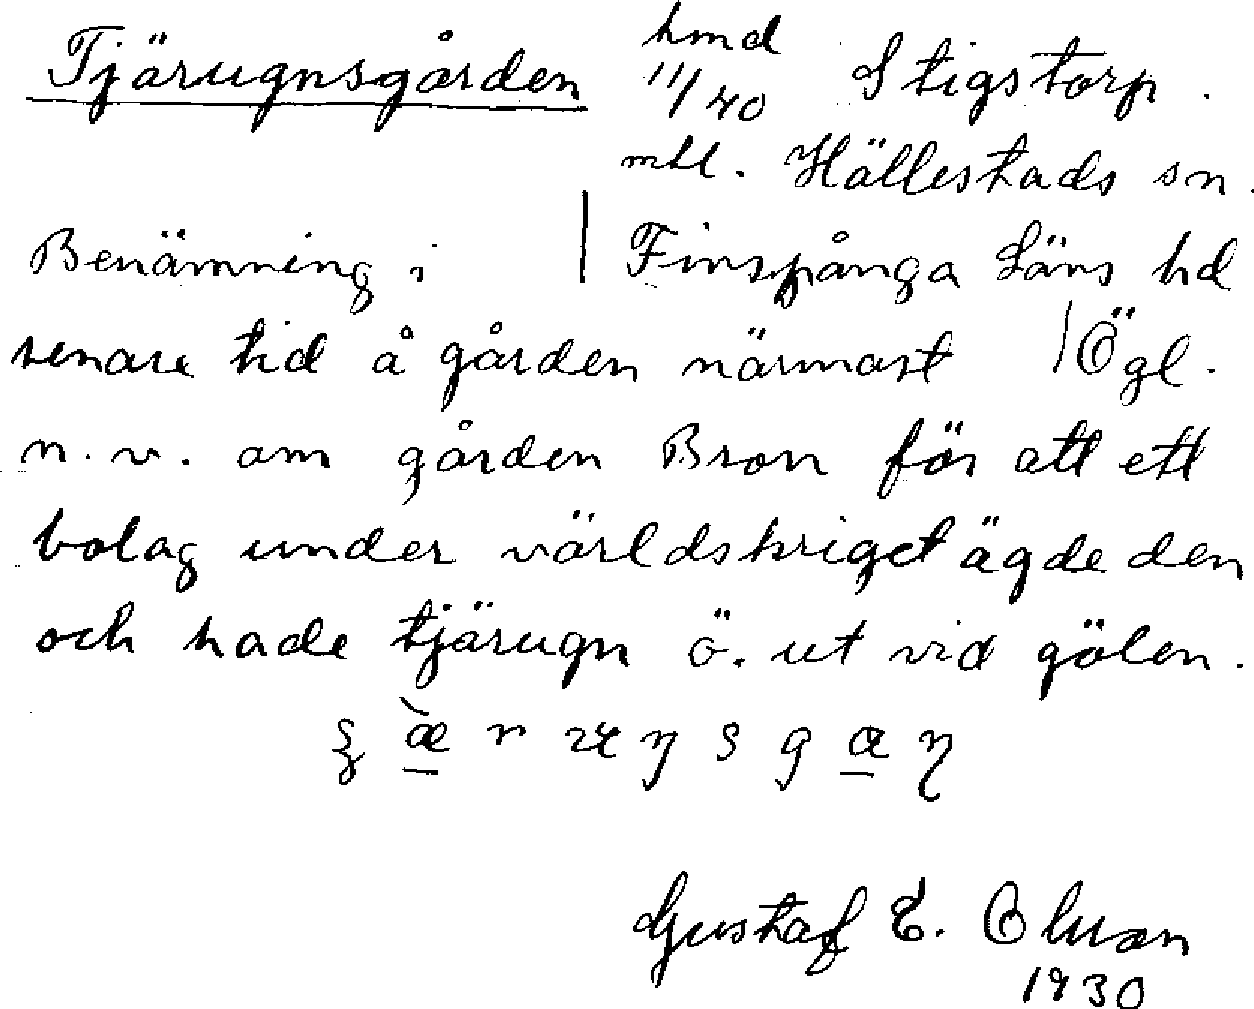 Tjärugnsgården hmd 11/40 Stigstorp.
mtl. Hällestads sn.
Benämning i | Finspånga Läns hd
senare tid å gården närmast | Ögl.
n. v. om gården Bron för att ett
bolag under världskriget ägde den
och hade tjärugn ö. ut vid gölen.
Gustaf E. Olsson
1930